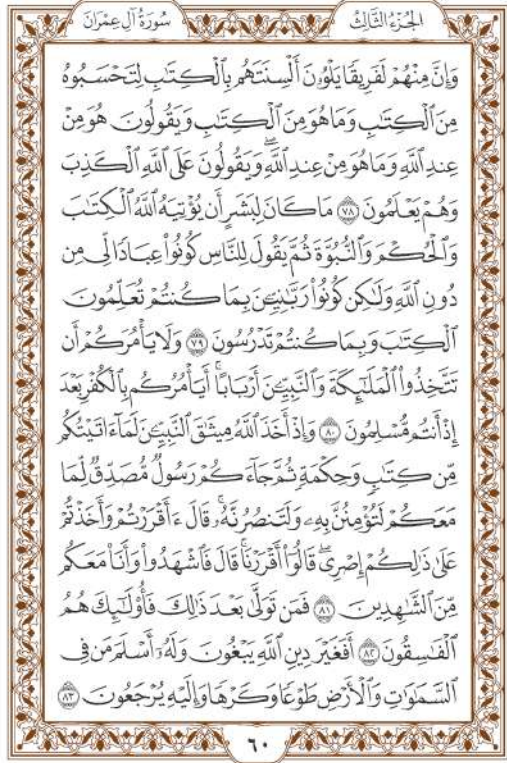 سُورَةُ آلِ عِمْرَانَ
الجُزْءُ الثَّالِثُ
وَإِنَّ مِنْهُمْ لَفَرِيقًا يَلْوُۥنَ أَلْسِنَتَهُم بِٱلْكِتَٰبِ لِتَحْسَبُوهُ
مِنَ ٱلْكِتَٰبِ وَمَا هُوَ مِنَ ٱلْكِتَٰبِ وَيَقُولُونَ هُوَ مِنْ
عِندِ ٱللَّهِ وَمَا هُوَ مِنْ عِندِ ٱللَّهِۖ وَيَقُولُونَ عَلَى ٱللَّهِ ٱلْكَذِبَ
وَهُمْ يَعْلَمُونَ ٧٨ مَا كَانَ لِبَشَرٍ أَن يُؤْتِيَهُ ٱللَّهُ ٱلْكِتَٰبَ
وَٱلْحُكْمَ وَٱلنُّبُوَّةَ ثُمَّ يَقُولَ لِلنَّاسِ كُونُوا۟ عِبَادًا لِّى مِن
دُونِ ٱللَّهِ وَلَٰكِن كُونُوا۟ رَبَّٰنِيِّـۧنَ بِمَا كُنتُمْ تُعَلِّمُونَ
ٱلْكِتَٰبَ وَبِمَا كُنتُمْ تَدْرُسُونَ ٧٩ وَلَا يَأْمُرَكُمْ أَن
تَتَّخِذُوا۟ ٱلْمَلَٰٓئِكَةَ وَٱلنَّبِيِّـۧنَ أَرْبَابًاۗ أَيَأْمُرُكُم بِٱلْكُفْرِ بَعْدَ
إِذْ أَنتُم مُّسْلِمُونَ ٨٠ وَإِذْ أَخَذَ ٱللَّهُ مِيثَٰقَ ٱلنَّبِيِّـۧنَ لَمَآ ءَاتَيْتُكُم
مِّن كِتَٰبٍ وَحِكْمَةٍ ثُمَّ جَآءَكُمْ رَسُولٌ مُّصَدِّقٌ لِّمَا
مَعَكُمْ لَتُؤْمِنُنَّ بِهِۦ وَلَتَنصُرُنَّهُۥۚ قَالَ ءَأَقْرَرْتُمْ وَأَخَذْتُمْ
عَلَىٰ ذَٰلِكُمْ إِصْرِىۖ قَالُوٓا۟ أَقْرَرْنَاۚ قَالَ فَٱشْهَدُوا۟ وَأَنَا۠ مَعَكُم
مِّنَ ٱلشَّٰهِدِينَ ٨١ فَمَن تَوَلَّىٰ بَعْدَ ذَٰلِكَ فَأُو۟لَٰٓئِكَ هُمُ
ٱلْفَٰسِقُونَ ٨٢ أَفَغَيْرَ دِينِ ٱللَّهِ يَبْغُونَ وَلَهُۥٓ أَسْلَمَ مَن فِى
ٱلسَّمَٰوَٰتِ وَٱلْأَرْضِ طَوْعًا وَكَرْهًا وَإِلَيْهِ يُرْجَعُونَ ٨٣
٦٠